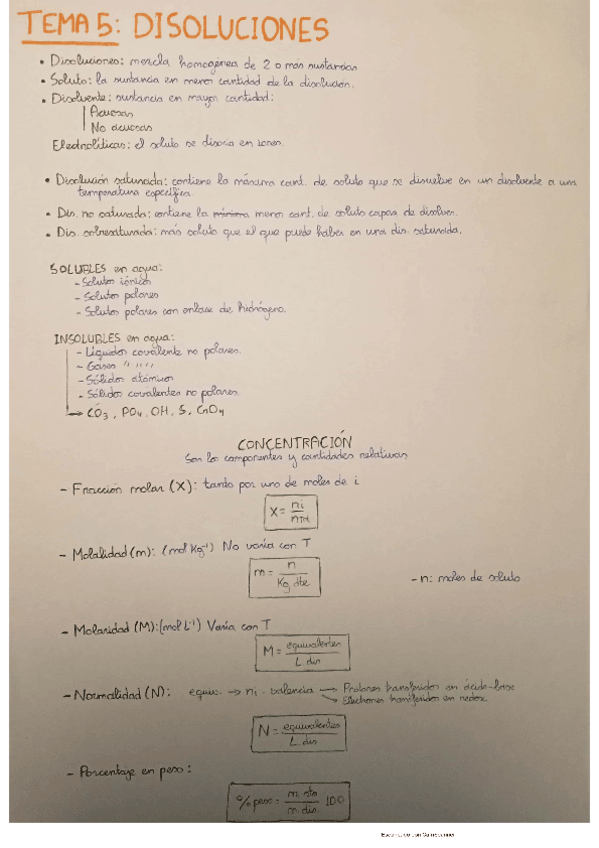 TEMA 5: DISOLUCIONES
• Disoluciones: mezcla homogénea de 2 o más sustancias
• Soluto: la sustancia en menor cantidad de la disolución.
• Disolvente: sustancia en mayor cantidad:
Acuosas
No acuosas
Electrolíticas: el soluto se disocia en iones.
• Disolución saturada: contiene la máxima cant. de soluto que se disuelve en un disolvente a una
temperatura específica.
• Dis. no saturada: contiene la mínima menor cant. de soluto capaz de disolver.
• Dis. sobresaturada: más soluto que el que puede haber en una dis. saturada.
SOLUBLES en agua:
- Solutos iónicos
- Solutos polares
- Solutos polares con enlace de hidrógeno.
INSOLUBLES en agua:
- Líquidos covalente no polares.
- Gases " " " "
- Sólidos atómicos
- Sólidos covalentes no polares
→ CO3, PO4, OH, S, CrO4
CONCENTRACIÓN
Son los componentes y cantidades relativas
- Fracción molar (X): tanto por uno de moles de i
X = ni / nTot
- Molalidad (m): (mol Kg⁻¹) No varía con T
m = n / Kg dte
- n: moles de soluto
- Molaridad (M): (mol L⁻¹) Varía con T
M = equivalentes / L dis
- Normalidad (N): equiv. → ni · valencia → Protones transferidos en ácido-base
→ Electrones transferidos en redox
N = equivalentes / L dis
- Porcentaje en peso:
% peso = m. sto / m. dis. 100